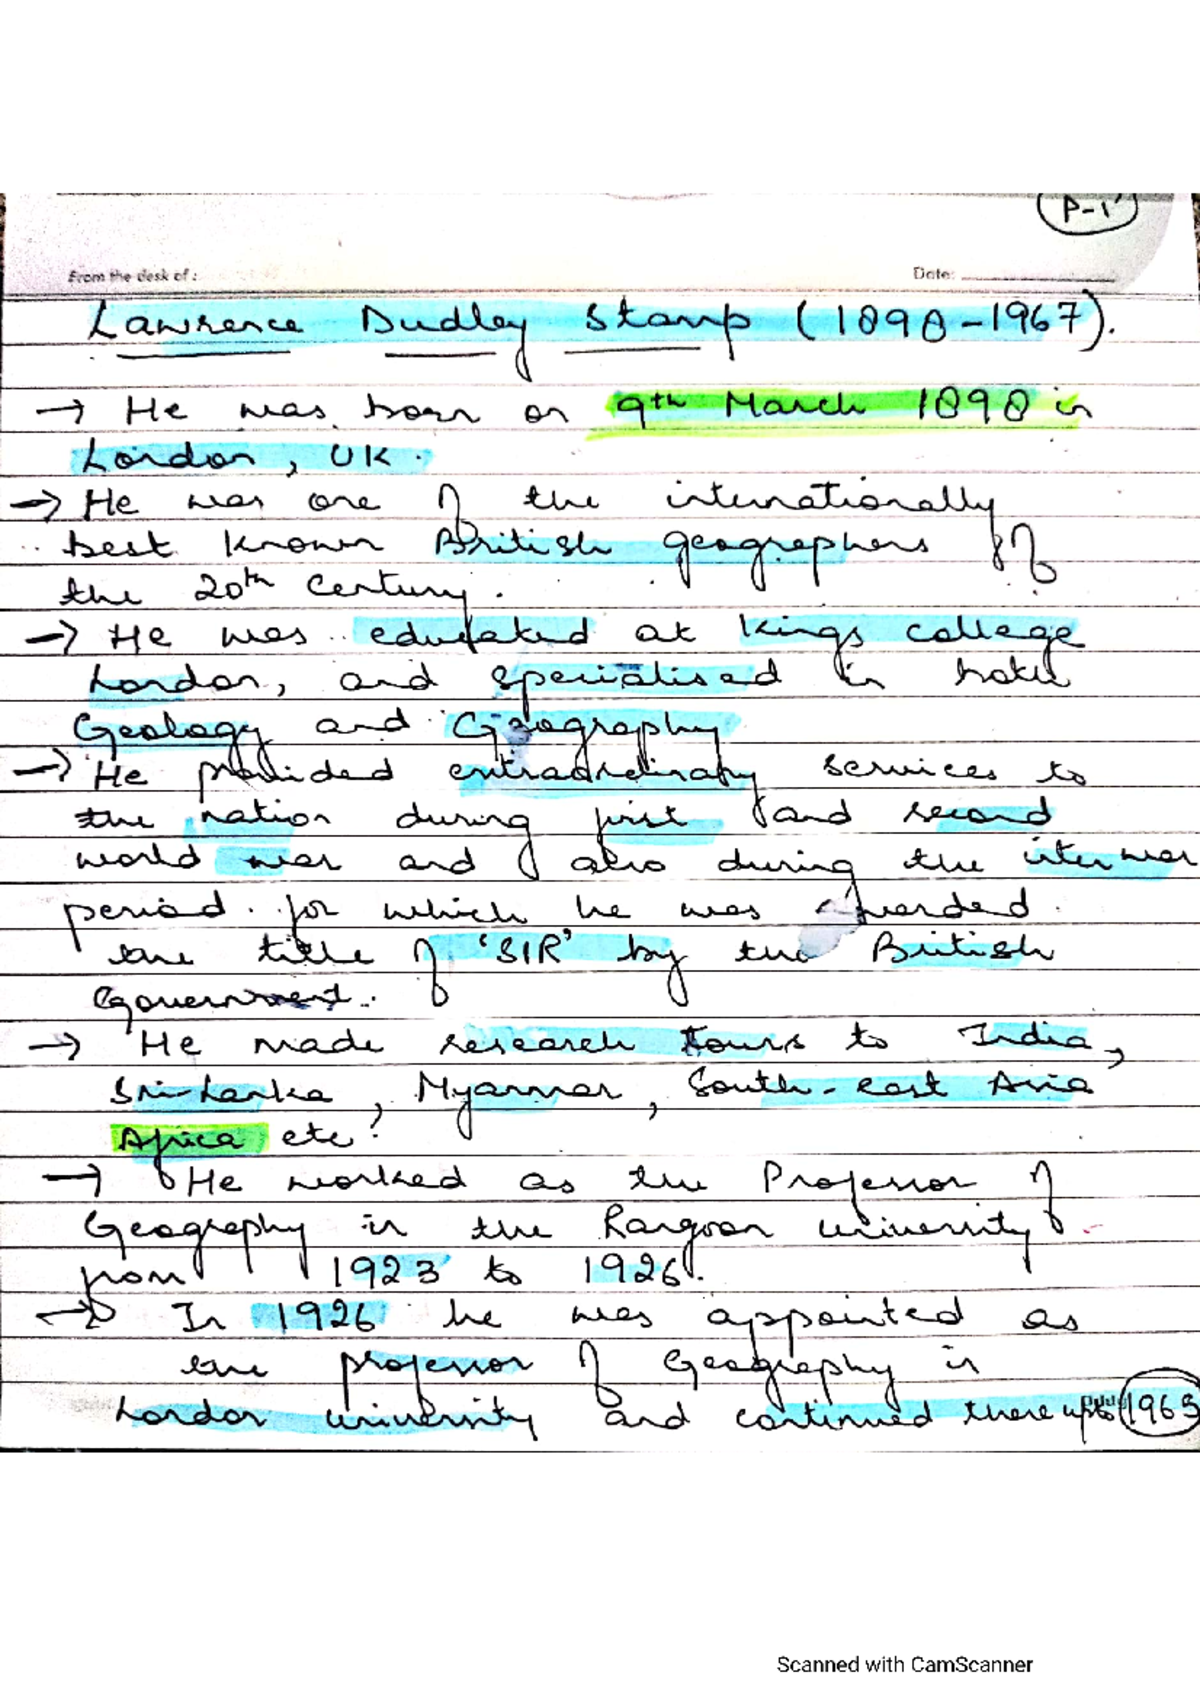 P-1
From the desk of :
Date:
Lawrence Dudley Stamp (1898-1967).
→ He was born on 9th March 1898 in
London, UK.
→ He was one of the internationally
best known British geographers of
the 20th Century.
→ He was educated at Kings college
London, and specialised in both
Geology and Geography
→ He provided extraordinary services to
the nation during first and second
world war and also during the inter war
period. for which he was awarded
the title of 'SIR' by the British
Government.
→ He made research tours to India,
Sri-Lanka, Myanmar, South-east Asia
Africa etc.
→ He worked as the Professor of
Geography in the Rangoon university
from 1923 to 1926.
→ In 1926 he was appointed as
the professor of Geography in
London university and continued there upto 1965
Scanned with CamScanner